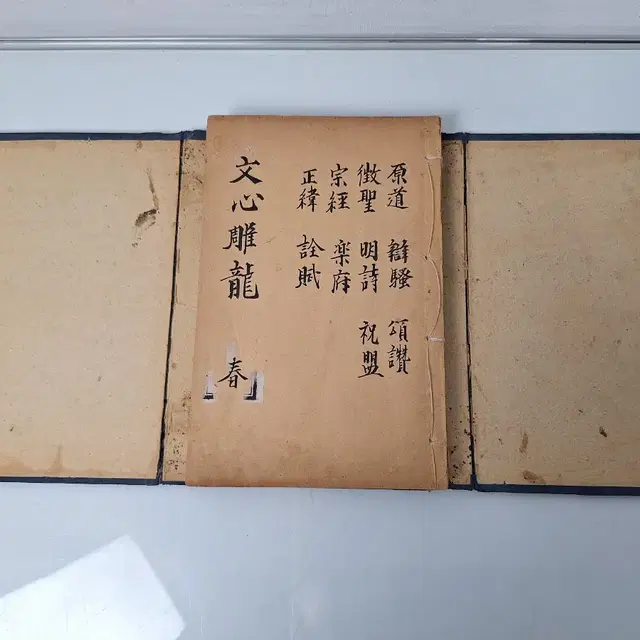 原道 辯騷 頌讚
徵聖 明詩 祝盟
宗經 楽府
正緯 詮賦
文心雕龍 春